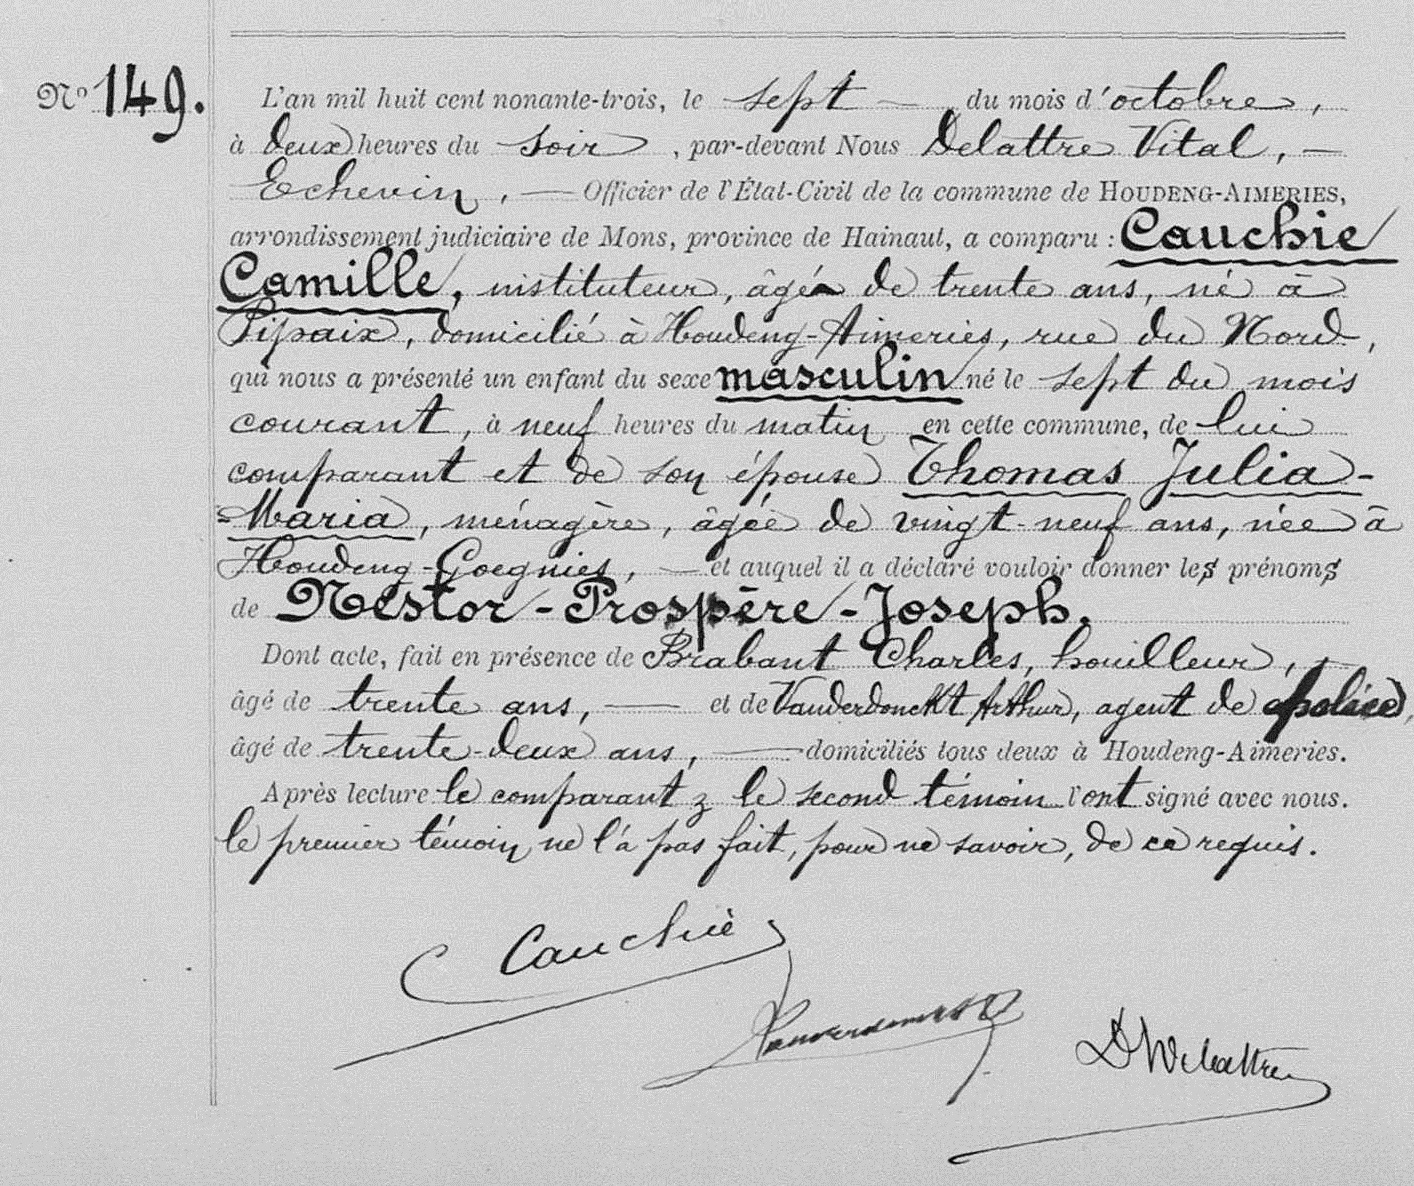 N° 149. L'an mil huit cent nonante-trois, le sept — du mois d'octobre,
à deux heures du soir, par-devant Nous Delattre Vital, —
Echevin, — Officier de l'État-Civil de la commune de HOUDENG-AIMERIES,
arrondissement judiciaire de Mons, province de Hainaut, a comparu : Cauchie
Camille, instituteur, âgé de trente ans, né à
Pipaix, domicilié à Houdeng-Aimeries, rue du Nord,
qui nous a présenté un enfant du sexe masculin né le sept du mois
courant, à neuf heures du matin en cette commune, de lui
comparant et de son épouse Thomas Julia-
=Maria, ménagère, âgée de vingt-neuf ans, née à
Houdeng-Goegnies, — et auquel il a déclaré vouloir donner les prénoms
de Nestor-Prospère-Joseph.
Dont acte, fait en présence de Brabant Charles, houilleur,
âgé de trente ans, — et de Vanderdonckt Arthur, agent de police,
âgé de trente-deux ans, — domiciliés tous deux à Houdeng-Aimeries.
Après lecture le comparant & le second témoin l'ont signé avec nous.
le premier témoin ne l'a pas fait, pour ne savoir, de ce requis.
Cauchie
Vanderdonckt
DVDelattre